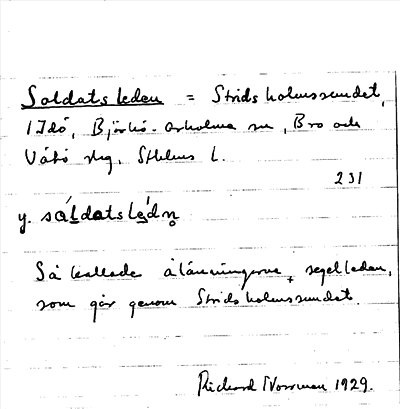 Soldatsleden = Stridsholmssundet,
i Idö, Björkö-Arholma sn, Bro och
Vätö skg, Sthlms l.
231
y. sáldatslédn̥
Så kallade ålänningarna segelleden,
som går genom Stridsholmssundet.
Richard Norrman 1929.